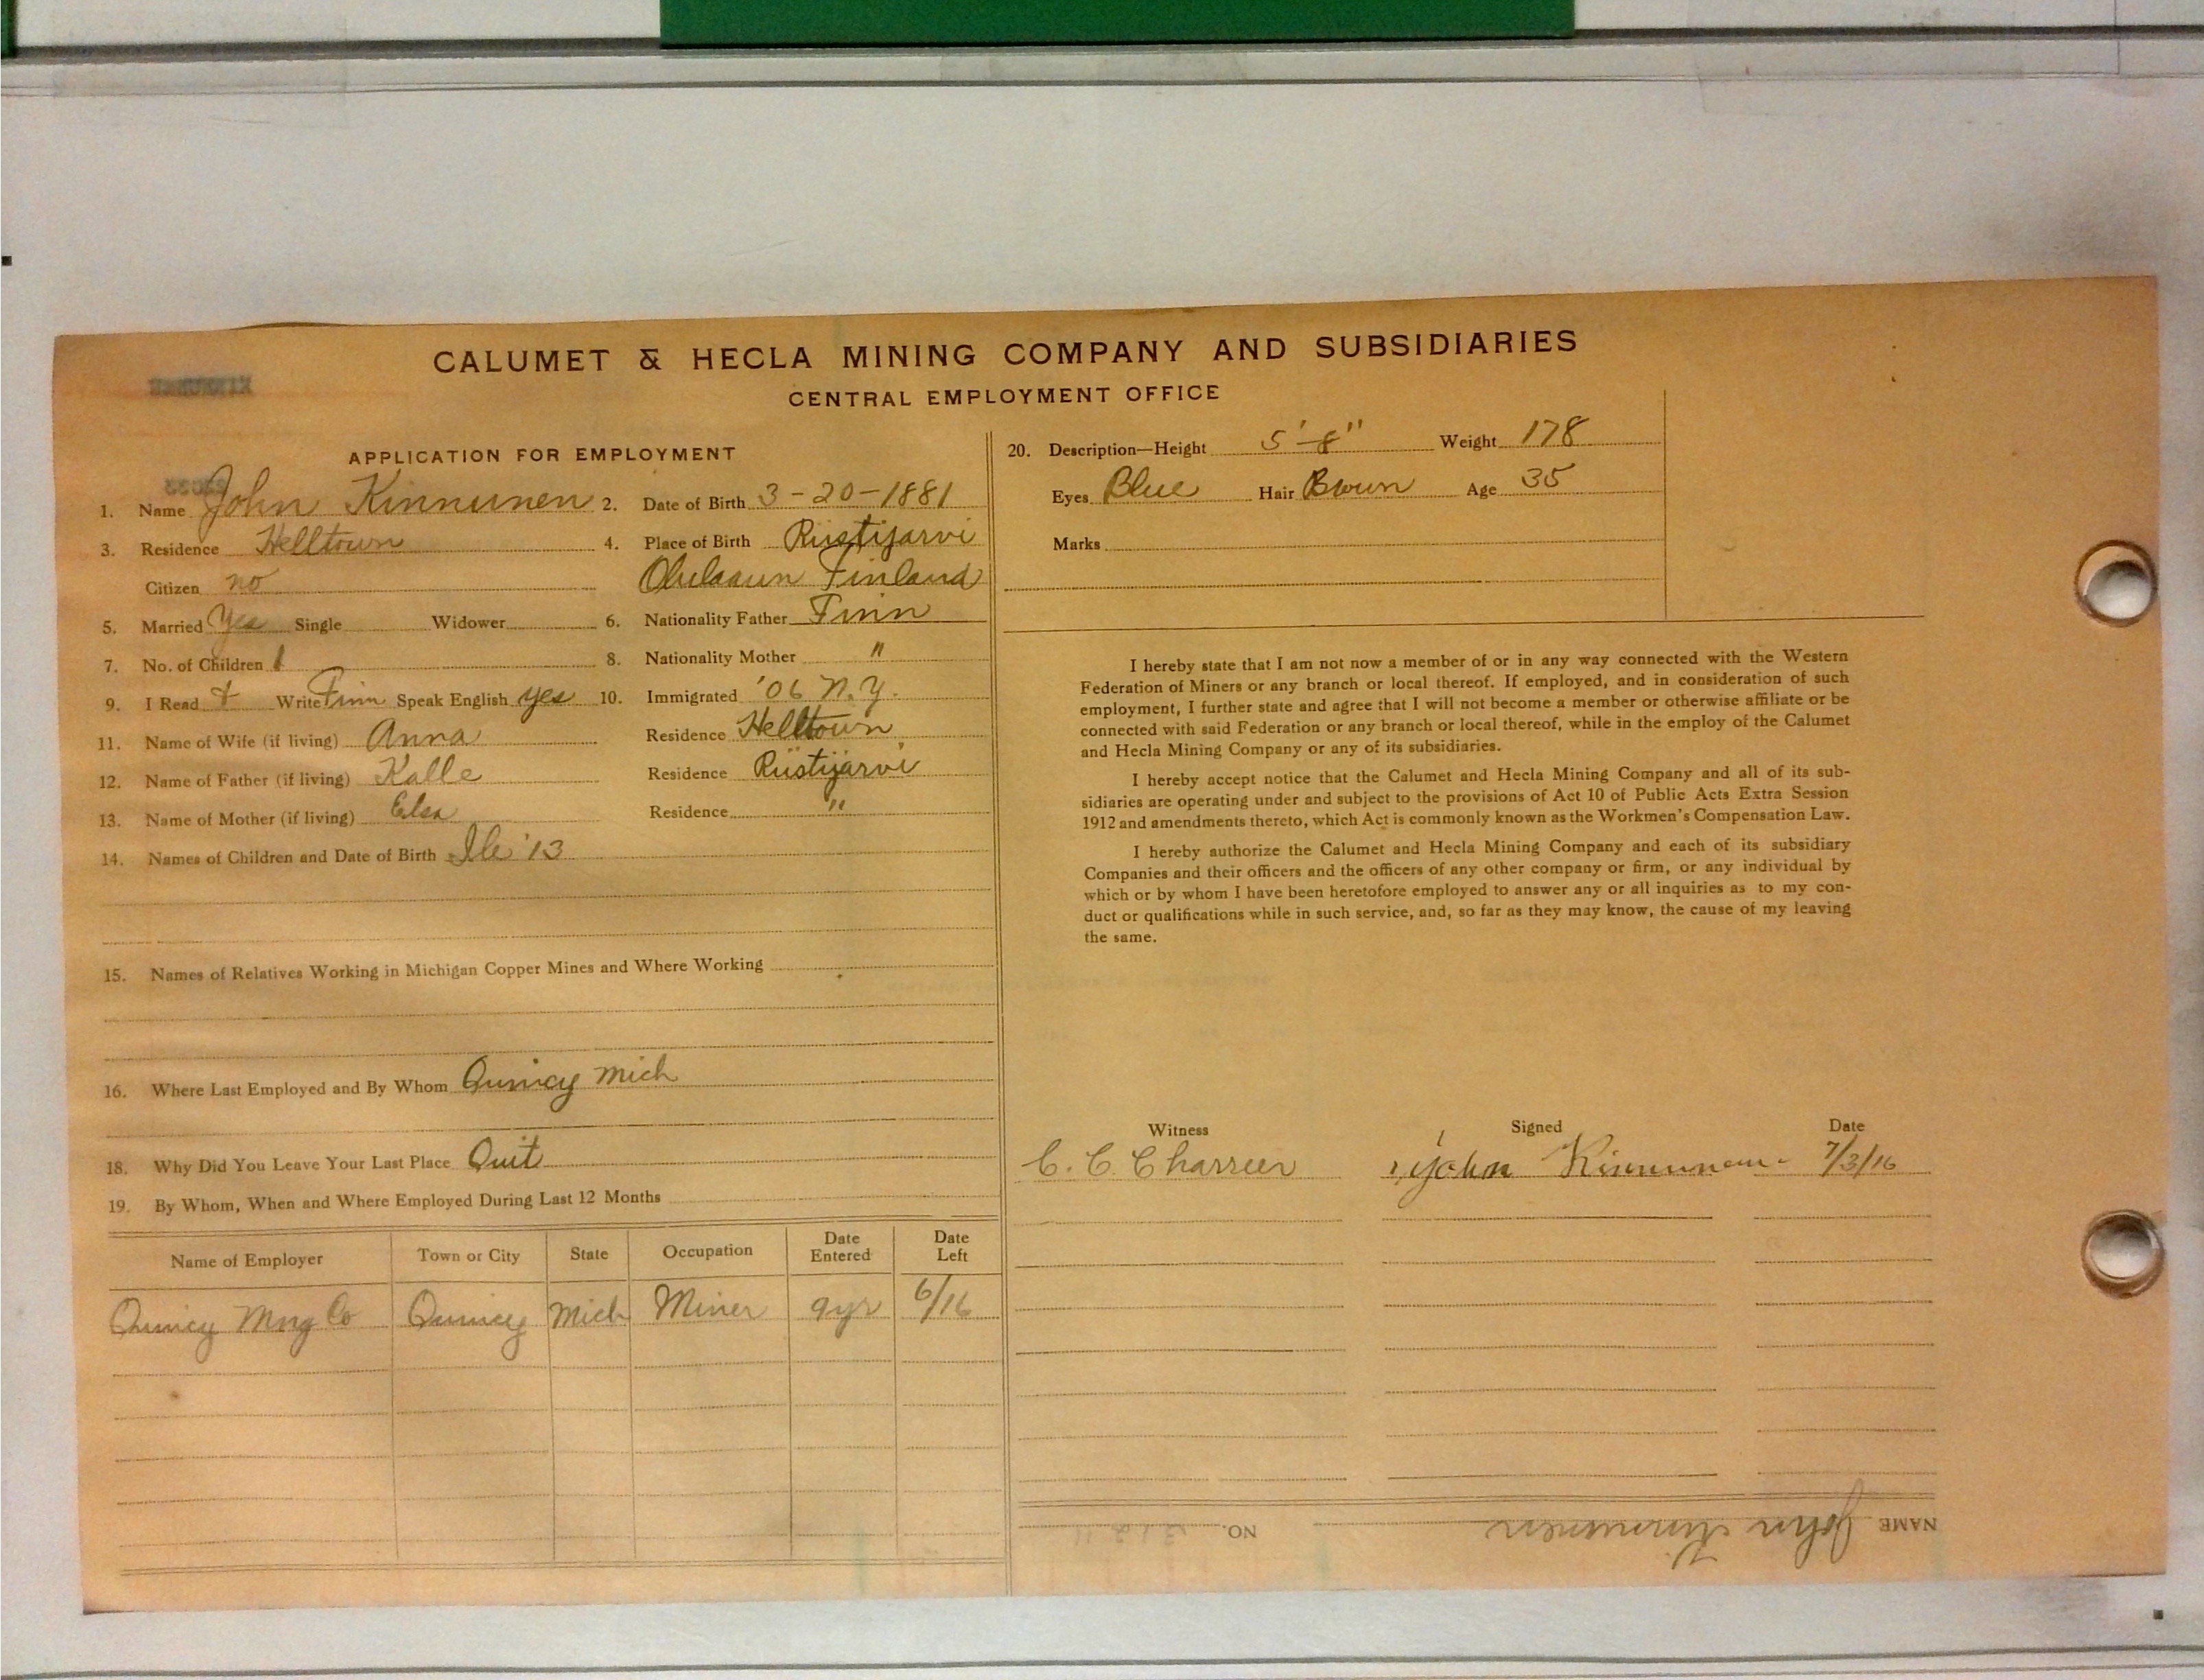 CALUMET & HECLA MINING COMPANY AND SUBSIDIARIES
CENTRAL EMPLOYMENT OFFICE
APPLICATION FOR EMPLOYMENT
1. Name John Kinnunen 2. Date of Birth 3-20-1881
3. Residence Helltown 4. Place of Birth Riistijarvi
Citizen no Finland
5. Married Yes Single Widower 6. Nationality Father Finn
7. No. of Children 1 8. Nationality Mother "
9. I Read + Write Finn Speak English yes 10. Immigrated '06 N.Y.
11. Name of Wife (if living) Anna Residence Helltown
12. Name of Father (if living) Kalle Residence Riistijärvi
13. Name of Mother (if living) Elsa Residence "
14. Names of Children and Date of Birth '13
15. Names of Relatives Working in Michigan Copper Mines and Where Working
16. Where Last Employed and By Whom Quincy Mich
18. Why Did You Leave Your Last Place Quit
19. By Whom, When and Where Employed During Last 12 Months
Name of Employer Town or City State Occupation Date Entered Date Left
Quincy Mng Co Quincy Mich Miner 9yr 6/16
20. Description—Height 5'-8" Weight 178
Eyes Blue Hair Brown Age 35
Marks
I hereby state that I am not now a member of or in any way connected with the Western
Federation of Miners or any branch or local thereof. If employed, and in consideration of such
employment, I further state and agree that I will not become a member or otherwise affiliate or be
connected with said Federation or any branch or local thereof, while in the employ of the Calumet
and Hecla Mining Company or any of its subsidiaries.
I hereby accept notice that the Calumet and Hecla Mining Company and all of its sub-
sidiaries are operating under and subject to the provisions of Act 10 of Public Acts Extra Session
1912 and amendments thereto, which Act is commonly known as the Workmen's Compensation Law.
I hereby authorize the Calumet and Hecla Mining Company and each of its subsidiary
Companies and their officers and the officers of any other company or firm, or any individual by
which or by whom I have been heretofore employed to answer any or all inquiries as to my con-
duct or qualifications while in such service, and, so far as they may know, the cause of my leaving
the same.
Witness Signed Date
C. C. John Kinnunen 7/3/16
NAME John Kinnunen NO.